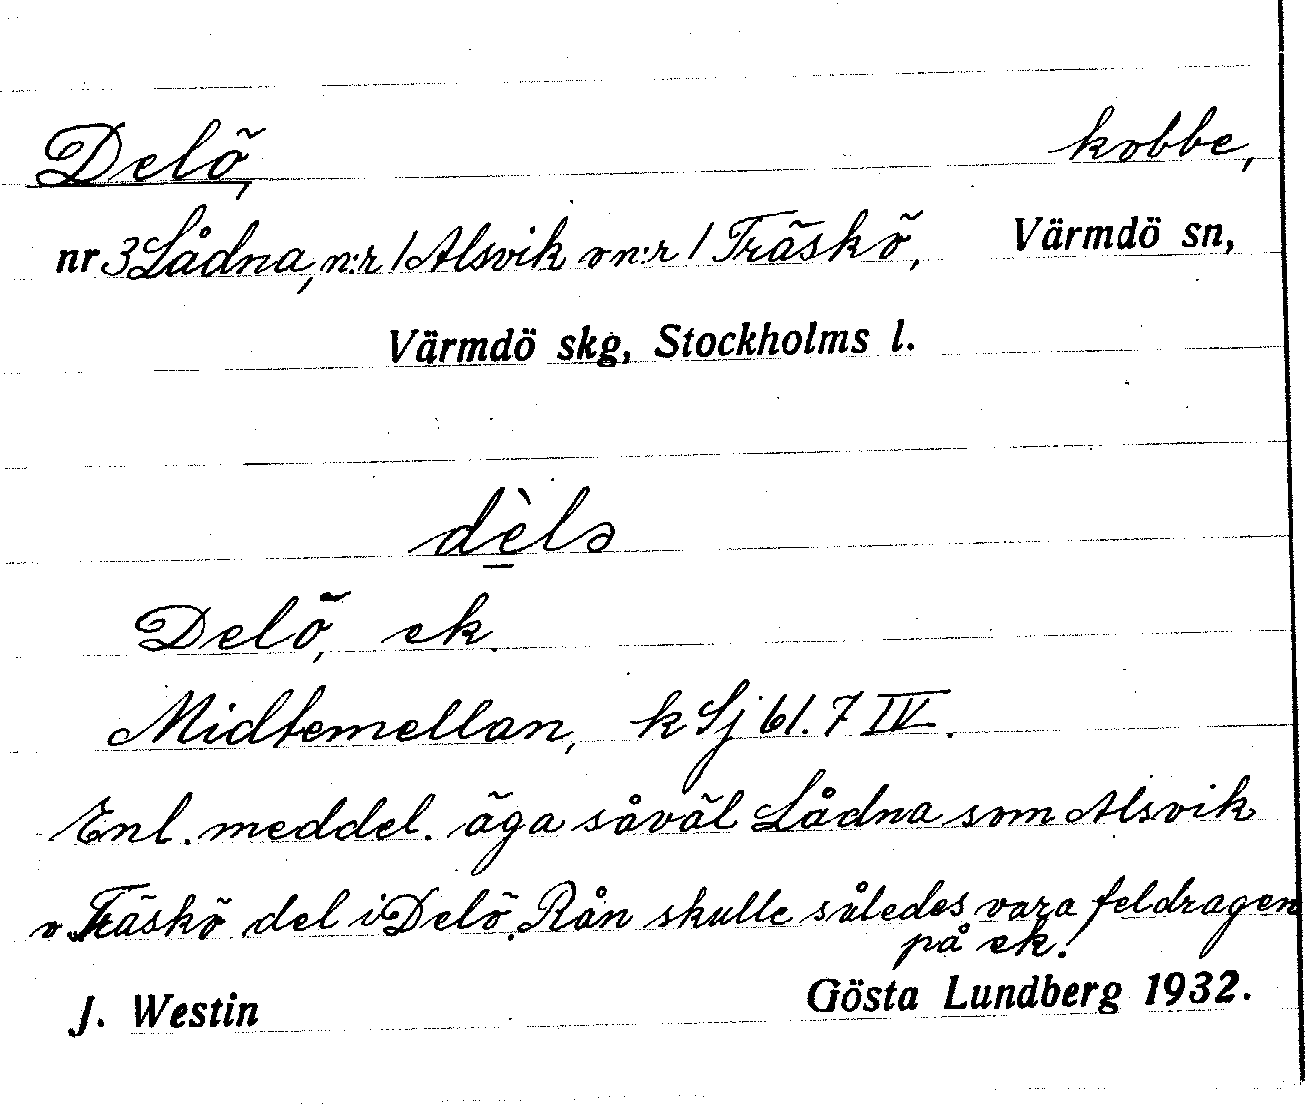 Delö, kobbe,
nr 3 Lådna, n:r 1 Alsvik o n:r 1 Träskö, Värmdö sn,
Värmdö skg, Stockholms l.
dèlə
Delö, ek.
Midtemellan, k Sj 61. 7 IV.
Enl. meddel. äga såväl Lådna som Alsvik
o Träskö del i Delö. Rån skulle således vara feldragen
på ek.
J. Westin Gösta Lundberg 1932.